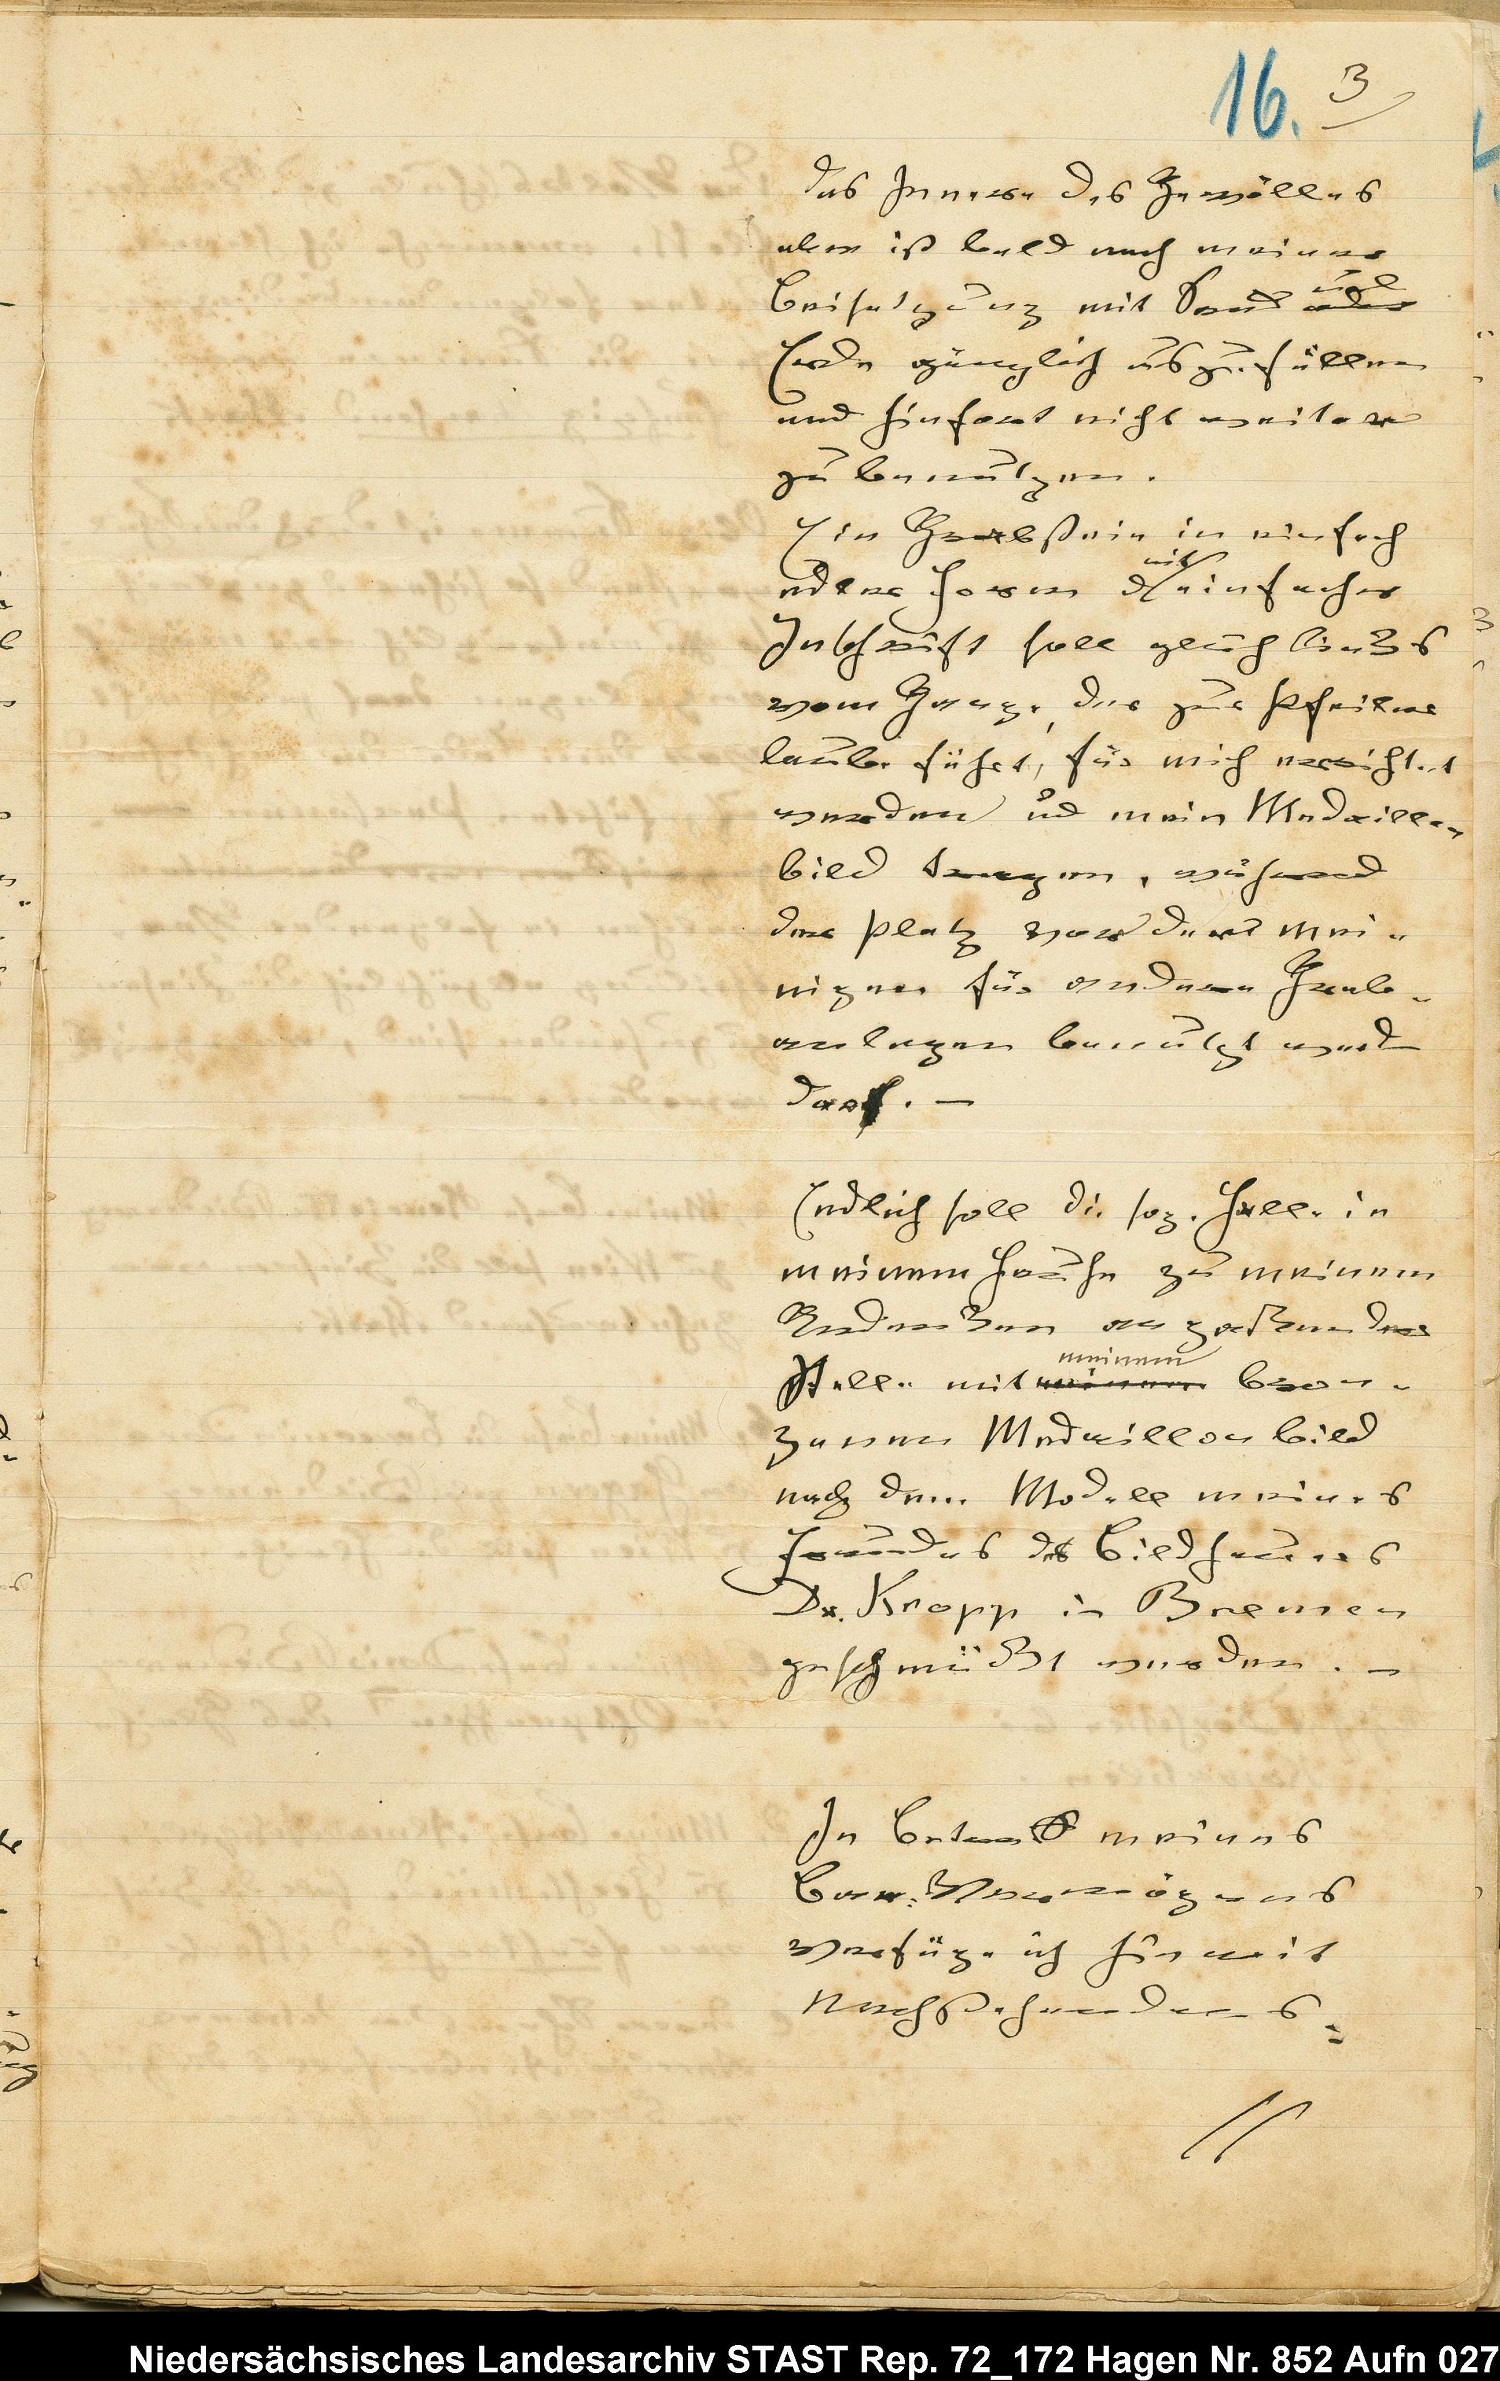 16. 3
Das Innere des Gewölbes
aber ist bald nach meiner
Beisetzung mit Sand und
oder
Erde gänzlich auszufüllen
und hinfort nicht weiter
zu benutzen.
Ein Grabstein in einfach
edler Form mit einfacher
Inschrift soll gleich links
vom Gange, der zur Pfeiler
laube führt, für mich errichtet
werden und mein Medaillon
bild tragen, während
der Platz vor dem mei-
nigen für andere Grab-
anlagen benutzt werden
darf. —
Endlich soll die sog. Halle in
meinem Hause zu meinem
Andenken an passender
Stelle mit meinem bron-
zenen Medaillonbild
nach dem Modell meines
Freundes des Bildhauers
Dr. Kropp in Bremen
geschmückt werden. —
In Betreff meines
Baar-Vermögens
verfüge ich hiermit
Nachstehendes:
//
Niedersächsisches Landesarchiv STAST Rep. 72_172 Hagen Nr. 852 Aufn 027